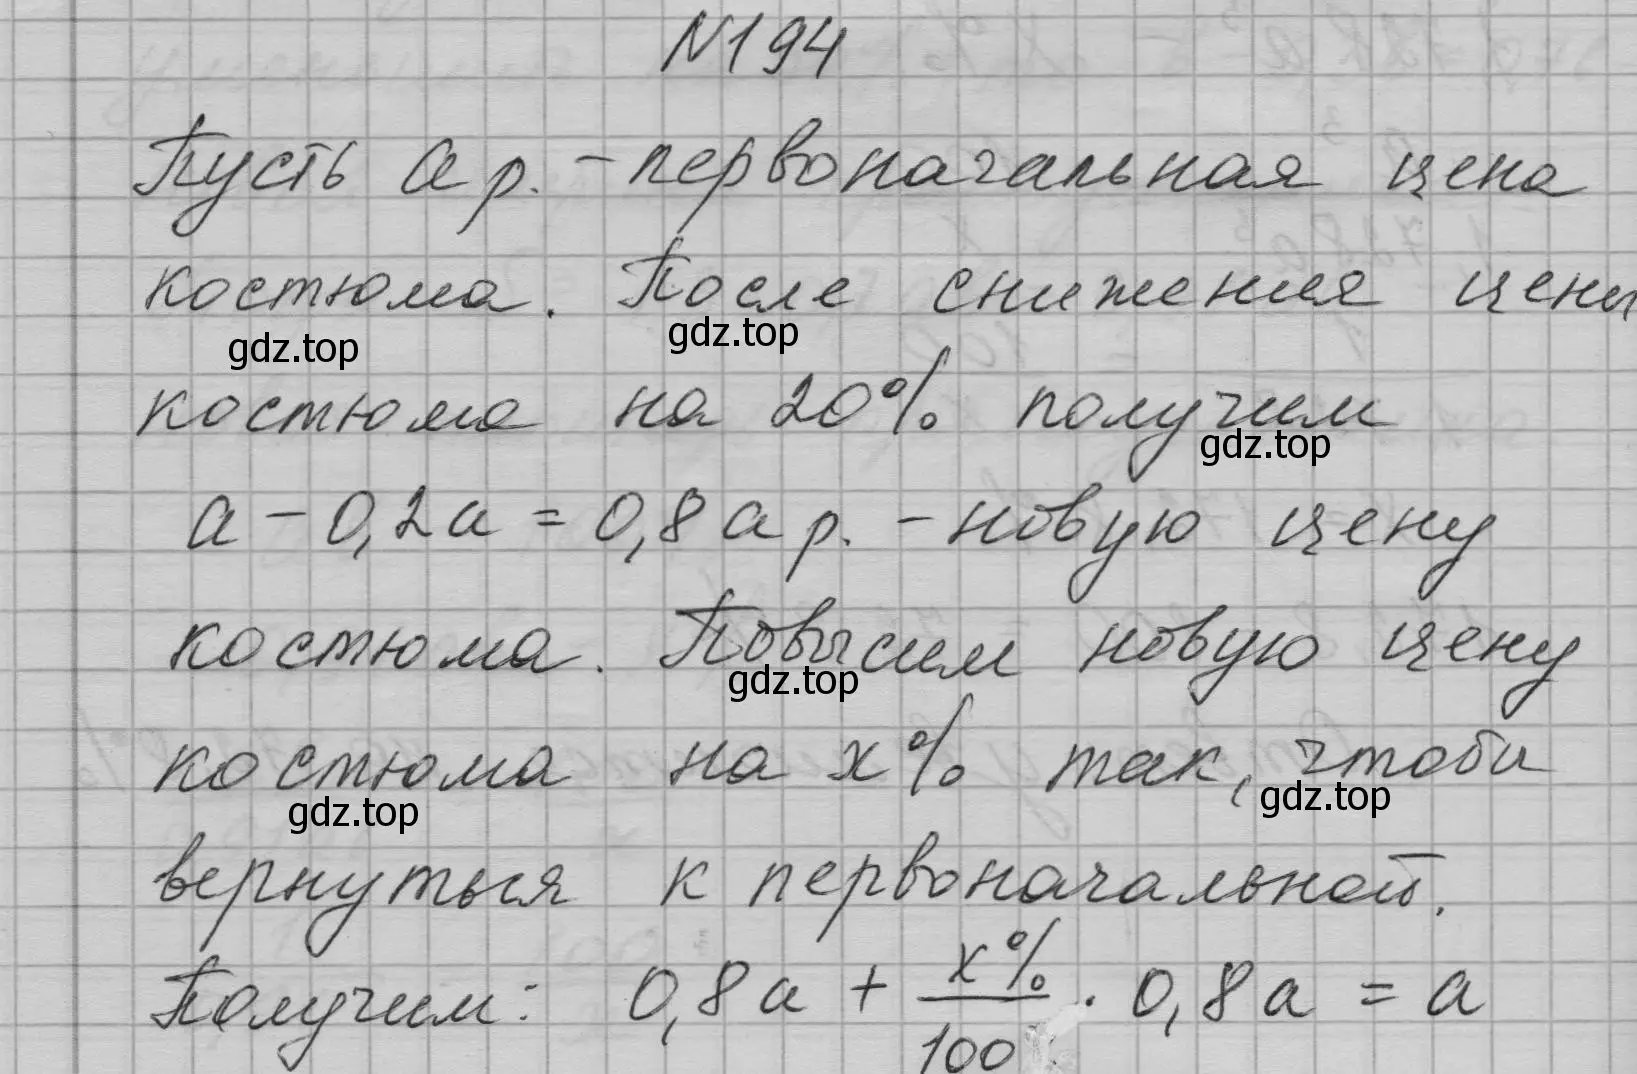 №194
Пусть a р. – первоначальная цена
костюма. После снижения цены
gdz.top gdz.top
костюма на 20% получим
gdz.top
a – 0,2a = 0,8a р. – новую цену
костюма. Повысим новую цену
gdz.top
костюма на x% так, чтобы
gdz.top gdz.top
вернуться к первоначальной.
Получим: 0,8a + x%/100 · 0,8a = a